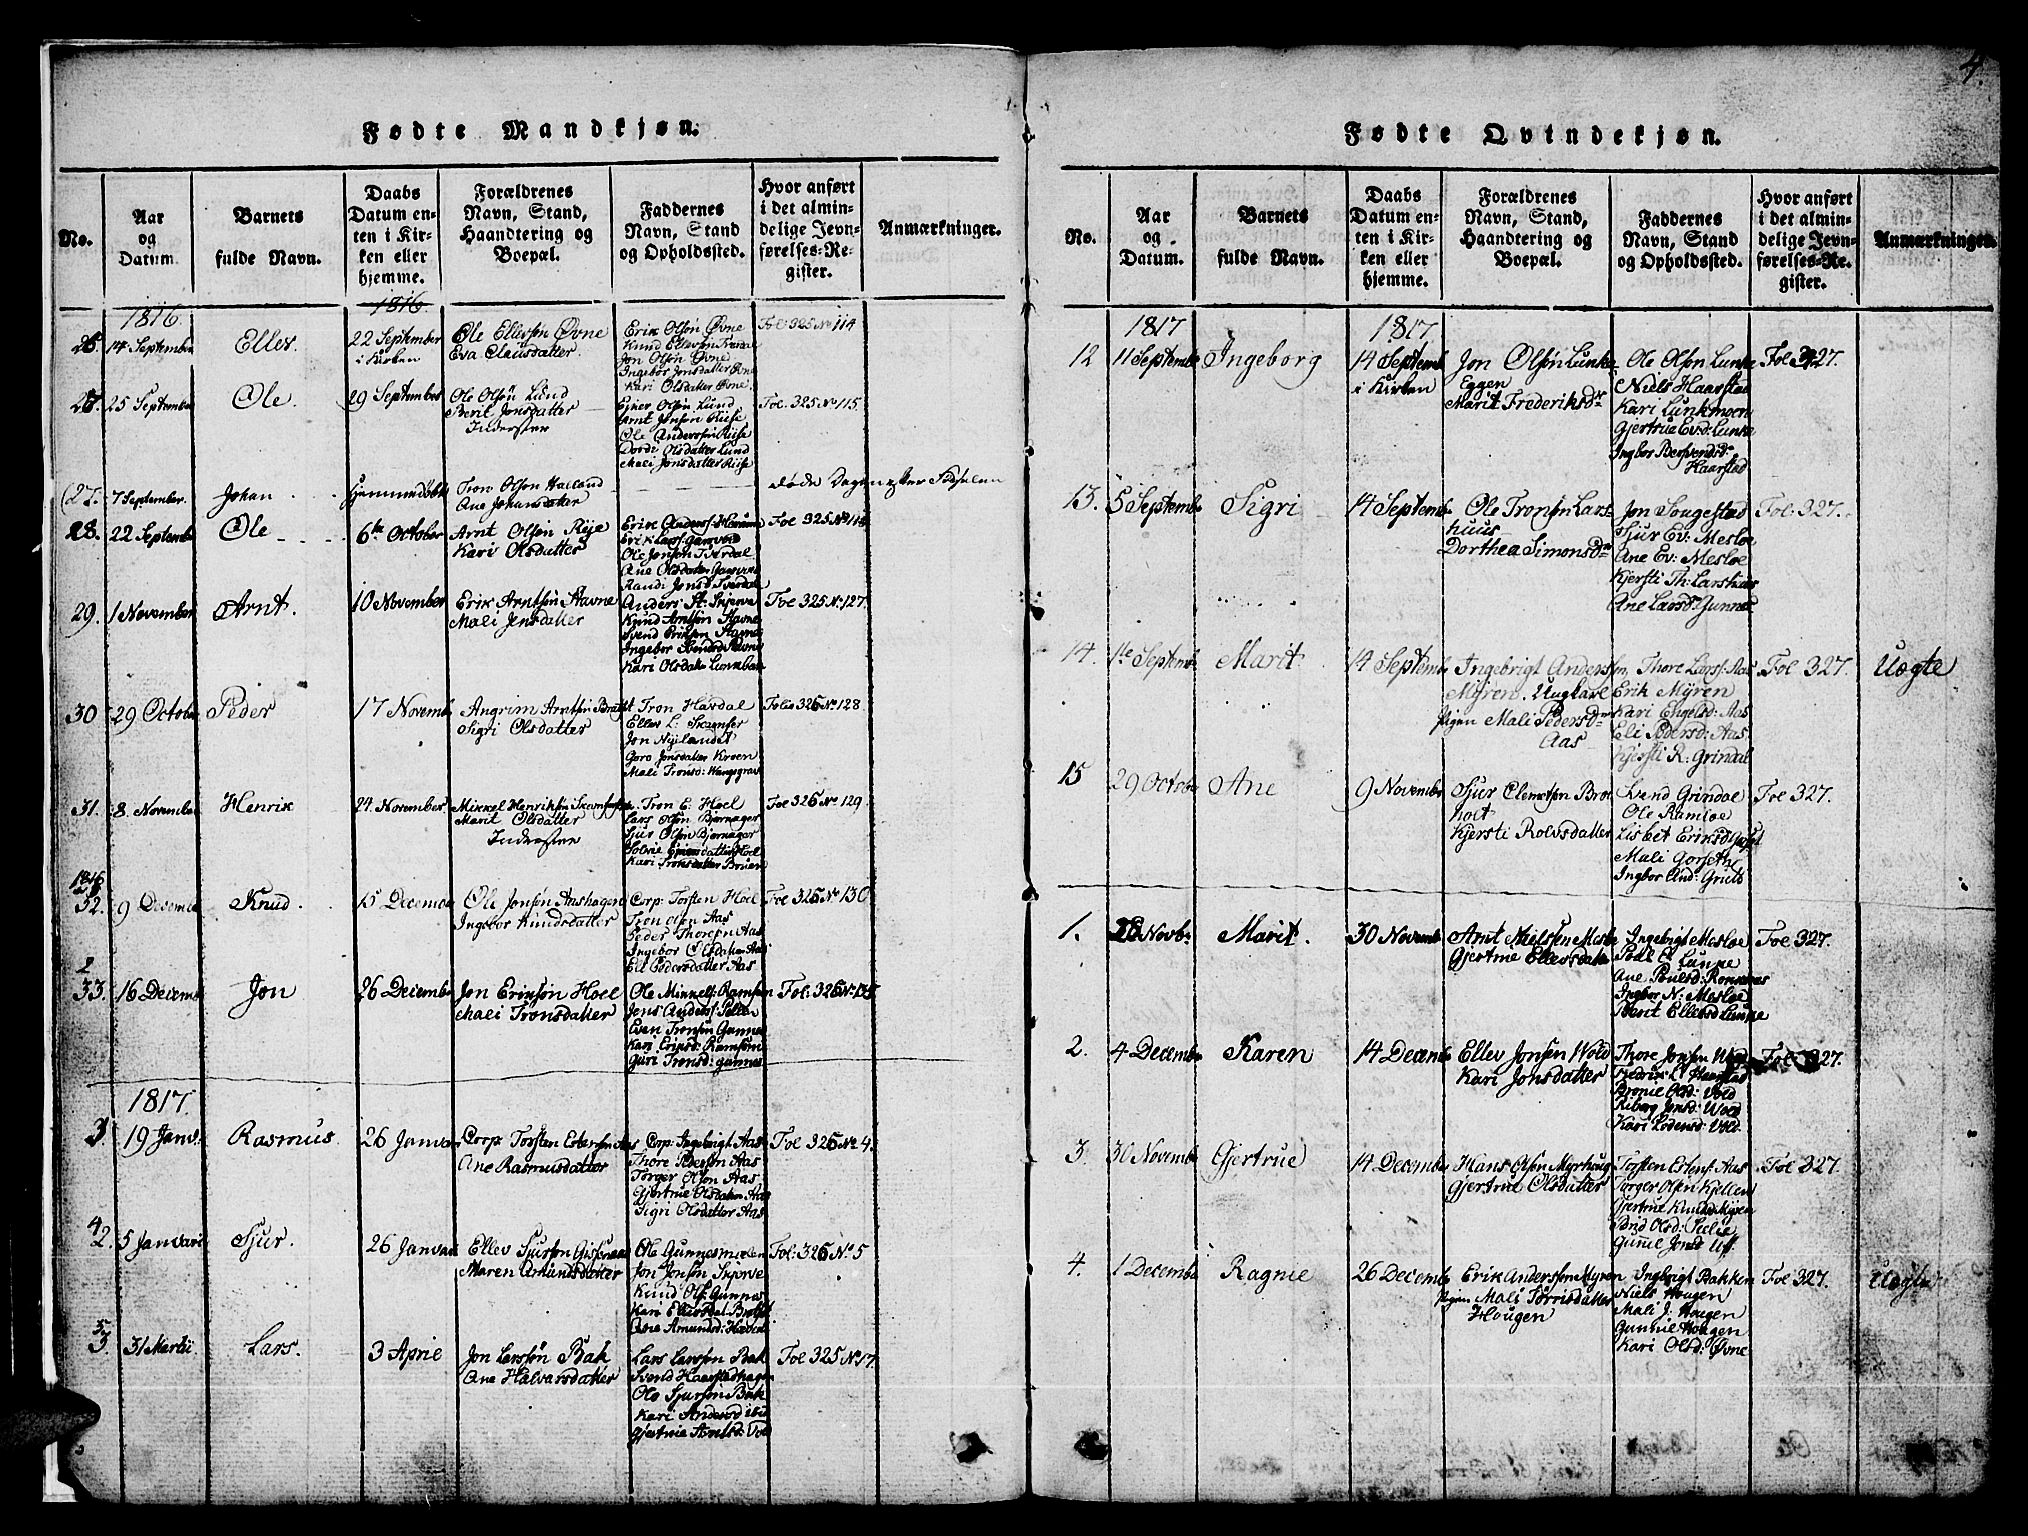 Fødte Mandkjøn.
No.
Aar
og
Datum.
Barnets
fulde Navn.
Daabs
Datum en-
ten i Kir-
ken eller
hjemme.
Forældrenes
Navn, Stand,
Haandtering og
Boepæl.
Faddernes
Navn, Stand
og Opholdssted.
Hvor anført
i det almin-
delige Jevn-
førelses-Re-
gister.
Anmærkninger.
1816
1816
14 September
Ellev.
22 September
i Kirken
Ole Ellevsøn Øvne
Eva Clausdatter
Erik Olsøn Øvne
Knud Ellevsøn
Jon Olsøn Øvne
Ingebor Jonsdatter Øvne
Kari Olsdatter Øvne
Fol 325 No 114
25 September
Ole.
29 September
Ole Olsøn Lund
Berit Jonsdatter
Inderster
Ejner Olsøn Lund
Arnt Jonsøn Riise
Ole Anderssøn Riise
Dordi Olsdatter Lund
Mali Jonsdatter Riise
Fol 325 No 115
27.
7 September.
Johan
hjemmedøbt
Tron Olsøn Halland
Ane Johansdatter
døde Dagen efter Fødselen
28.
22 Septemb
Ole
6te October
Arnt Olsøn
Kari Olsdatter
Erik Anders:
Erik Larss:
Ole Jonsøn
Ane Olsdatter
Randi Jonsd
Fol 325 No 114
29.
1 November
Arnt.
10 November
Erik Arntsøn Stavne
Mali Jensdatter
Anders St: Skjerve
Knud Arntsøn Stavne
Svend Eriksøn Stavne
Ingebor Svendsd Stavne
Kari Olsdatr
Fol 325 No 127.
30
29 Octobr
Peder
17 Novemb
Angrim Arntsøn
Sigri Olsdatter
Tron Havdal
Ellev L:
Jon Nyelandet
Goro Jonsdatter
Mali Tronsd:
Folio 326 No 128.
31.
8. November
Henrik
24. November
Mikkel Henriksøn
Marit Olsdatter
Inderster
Tron E. Hoel
Lars Olsøn Bjørnager
Sjur Olsøn Bjørnager
Hoel
Kari Tronsdatter
Fol 326 No 129
1816
32.
9 Decemb
Knud.
15 Decemb
Ole Jonsøn Aashagen
Ingebor Knudsdatter
Corp: Torsten Hoel
Tron Olsn Aas
Peder Thoresn Aas
Ingebor Olsdatr Aas
Eli Pedersdatter Aas
Fol 326 No 130
33.
16 Decemb
Jon
26 Decemb
Jon Eriksøn Hoel
Mali Tronsdatter
Ole Mikkels: Ramsem
Jens Anders:
Even Tronsøn Gunnes
Kari Eriksd: Ramsem
Guri Tronsd: Gunnes
Fol: 326 No
1817.
19 Janv:
Rasmus
26 Janvar
Corp Torsten Estensøn Aas
Ane Rasmusdatter
Corp: Ingebrigt Aas
Thore Pedersøn Aas
Torger Olsøn Aas
Gjertrue Olsdatr Aas
Sigri Olsdatter Aas
Fol 326 No 4.
5 Janvari
Sjur.
26 Janvar
Ellev Sjursøn
Maren Amundsdatter
Ole Gunnesmoen
Jon Jonsøn Skjerve
Knud Ols: Gunnes
Kari
Ane Amundsd:
Fol: 326 No 5
31 Martii
Lars.
3 Aprie
Jon Larssøn Bak
Ane Halvarsdatter
Lars Larssøn Bak
Svend Haarstadhagen
Ole Sjursøn Bak
Kari Andersd
Gjertrue Arntsd: Vol
Fol 325 No 17.
4.
Fødte Qvindekjøn.
No.
Aar
og
Datum.
Barnets
fulde Navn.
Daabs
Datum en-
ten i Kir-
ken eller
hjemme.
Forældrenes
Navn, Stand,
Haandtering og
Boepæl.
Faddernes
Navn, Stand
og Opholdssted.
Hvor anført
i det almin-
delige Jevn-
førelses-Re-
gister.
Anmærkninger.
1817
1817
12
11 Septemb
Ingeborg
14 Septemb
i Kirken
Jon Olsøn Lunke
Eggen
Marit Frederiksdr
Ole Olsøn Lunke
Niels Haarstad
Kari Lunkmoen
Gjertrue Ev:d: Lunke
Ingbor Bersvendsd:
Haarstad
Fol 327.
13.
5 Septemb
Sigri
14 Septemb
Ole Tronsøn Lars
huus
Dorthea Simonsdr
Jon Sougestad
Sjur Ev: Mesloe
Ane Ev: Mesloe
Kjersti Th: Larshuus
Ane Larsdr
Fol: 327.
14.
1te Septemb
Marit
14 Septemb
Ingebrigt Anderssøn
Myren. Ungkarl
Pigen Mali Pedersdr
Aas
Thore Larss: Aas
Erik Myren
Kari Engelsd: Aas
Eli Pedersd: Aas.
Kjersti R: Grindal
Fol 327.
Uægte
15
29 Octob
Ane
9 Novemb
Sjur Clemetsøn Broe
holt
Kjersti Rolvsdatter
Svend Grindal
Ole Ramloe
Lisbet Eriksd:
Mali Gorseth
Ingbor And:
Fol 327.
1.
Novbr
Marit.
30 Novemb
Arnt Nielssen Mesloe
Gjertrue Ellevsdatter
Ingebrigt Mesloe
Lunke
Ane Poulsd:
Ingbor N: Mesloe
Berit Ellevsd Lunke
Fol 327.
2.
4 Decemb
Karen
14 Decemb
Ellev Jonsen Wold
Kari Jonsdatter
Thore Jonsen Wold
Fredrik L: Haarstad
Olsd: Vold
Jonsd: Wold
Kari Lodensd: Vold.
Fol: 327.
3.
30 Novemb
Gjertrue
14 Decemb
Hans Olsøn Myrhoug
Gjertrue Olsdatter
Torsten Estens: Aas
Torger Olsen Kjellen
Gjertrue Knudsd Myren
Olsd:
Gunnel Jonsd
Fol 327.
4.
1 Decemb
Ragnie
26 Decemb
Erik Anderssøn Myren
Pigen Mali Torrisdatter
Hougen
Ingebrigt Bakken
Niels Hougen
Mali J. Hougen
Gunnil Hougen
Kari Olsd: Øvne
Fol 327.
Uægte